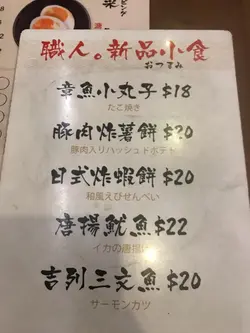 職人。新品小食
おつまみ
章魚小丸子 $18
たこ焼き
豚肉炸薯餅 $20
豚肉入りハッシュドポテト
日式炸蝦餅 $20
和風えびせんべい
唐揚魷魚 $22
イカの唐揚げ
吉列三文魚 $20
サーモンカツ